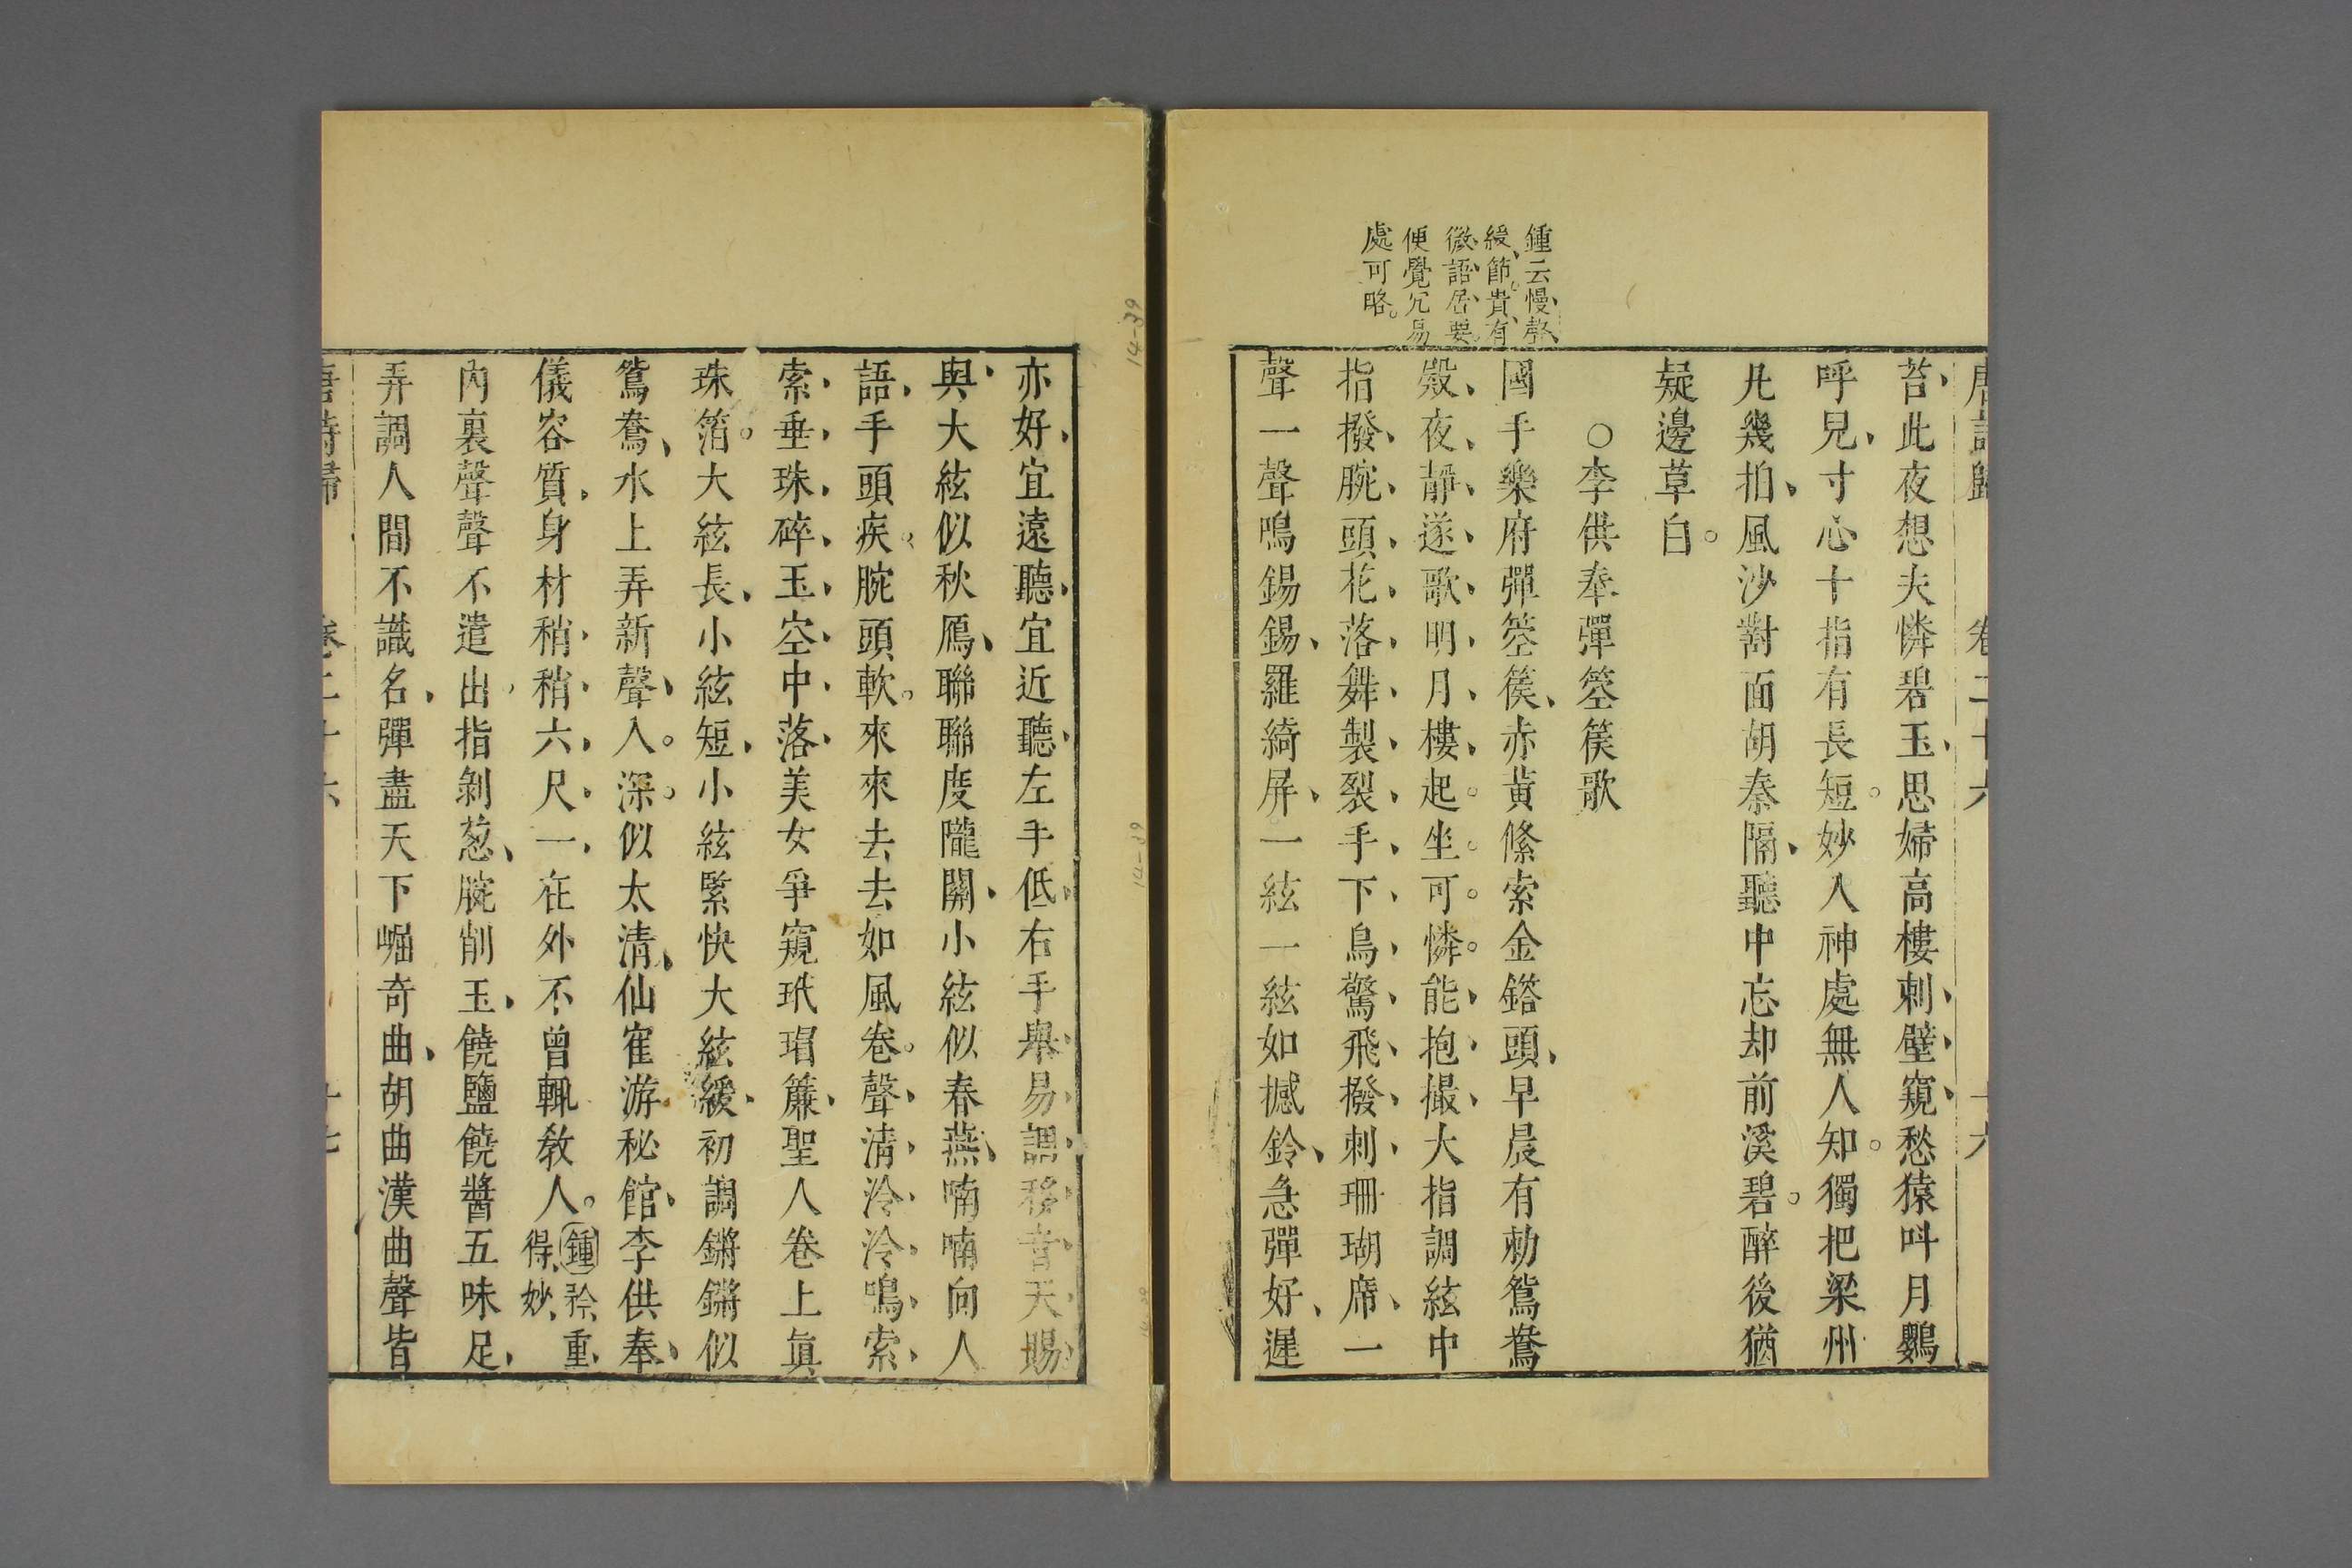 唐詩歸 卷二十六 十六
苔此夜想夫憐碧玉思婦高樓刺壁窺愁猿呌月鸚
呼兒寸心十指有長短妙入神處無人知獨把梁州
凡幾拍風沙對面胡秦隔聽中忘却前溪碧醉後猶
疑邊草白
○李供奉彈箜篌歌
國手樂府彈箜篌赤黃絛索金鎝頭早晨有勅鴛鴦
殿夜靜遂歌明月樓起坐可憐能抱撮大指調絃中
指撥腕頭花落舞製裂手下鳥驚飛撥剌珊瑚席一
聲一聲鳴錫錫羅綺屏一絃一絃如撼鈴急彈好遲
鍾云慢聲
緩節貴有
微語居要
便覺冗易
處可略
亦好宜遠聽宜近聽左手低右手舉易調移音天賜
與大絃似秋鴈聯聯度隴關小絃似春燕喃喃向人
語手頭疾腕頭軟來來去去如風卷聲清泠泠鳴索
索垂珠碎玉空中落美女爭窺玳瑁簾聖人卷上眞
珠箔大絃長小絃短小絃緊快大絃緩初調鏘鏘似
鴛鴦水上弄新聲入深似太清仙隺游秘館李供奉
儀容質身材稍稍六尺一在外不曾輒敎人鍾矜重
得妙
內裏聲聲不遣出指剝葱腕削玉饒鹽饒醬五味足
弄調人間不識名彈盡天下崛奇曲胡曲漢曲聲皆
唐詩歸 卷二十六 十七
14-39
14-39